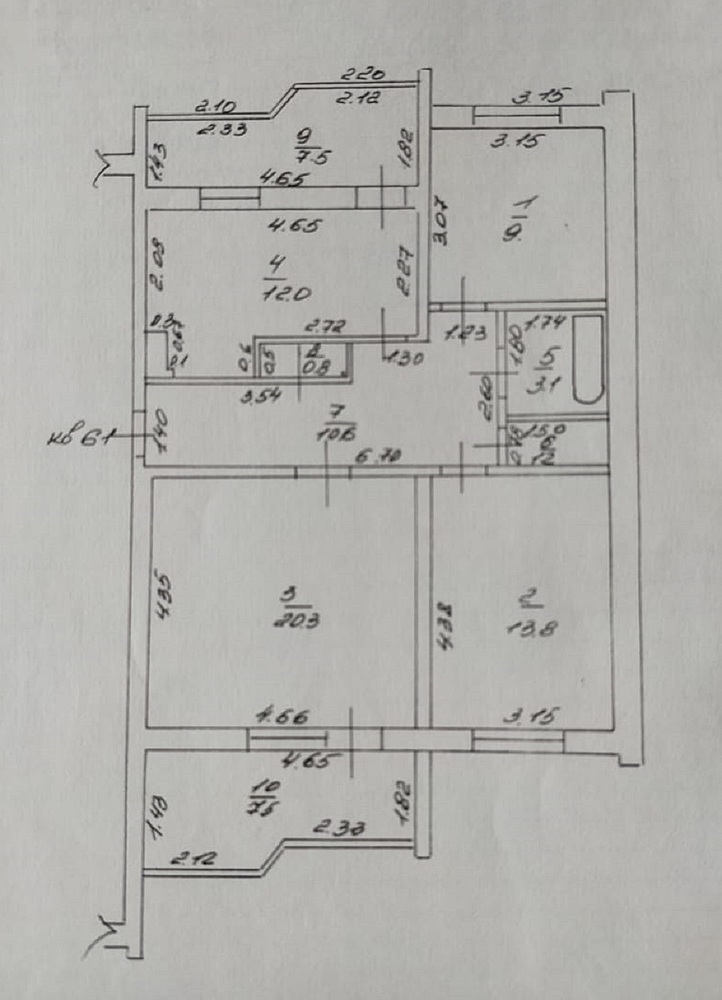 2.20
2.10
2.12
3.15
2.33
9
7.5
1.43
1.82
3.15
4.65
4.65
3.07
1
9.
2.09
4
12.0
2.27
0.3
0.67
0.1
2.72
1.30
1.23
1.74
1.80
5
3.1
0.6
0.5
8
0.8
3.54
2.60
кв 61
1.40
7
10.6
1.50
1.2
6.70
4.35
3
20.3
4.38
2
13.8
4.66
3.15
4.65
10
7.5
1.43
1.82
2.33
2.12